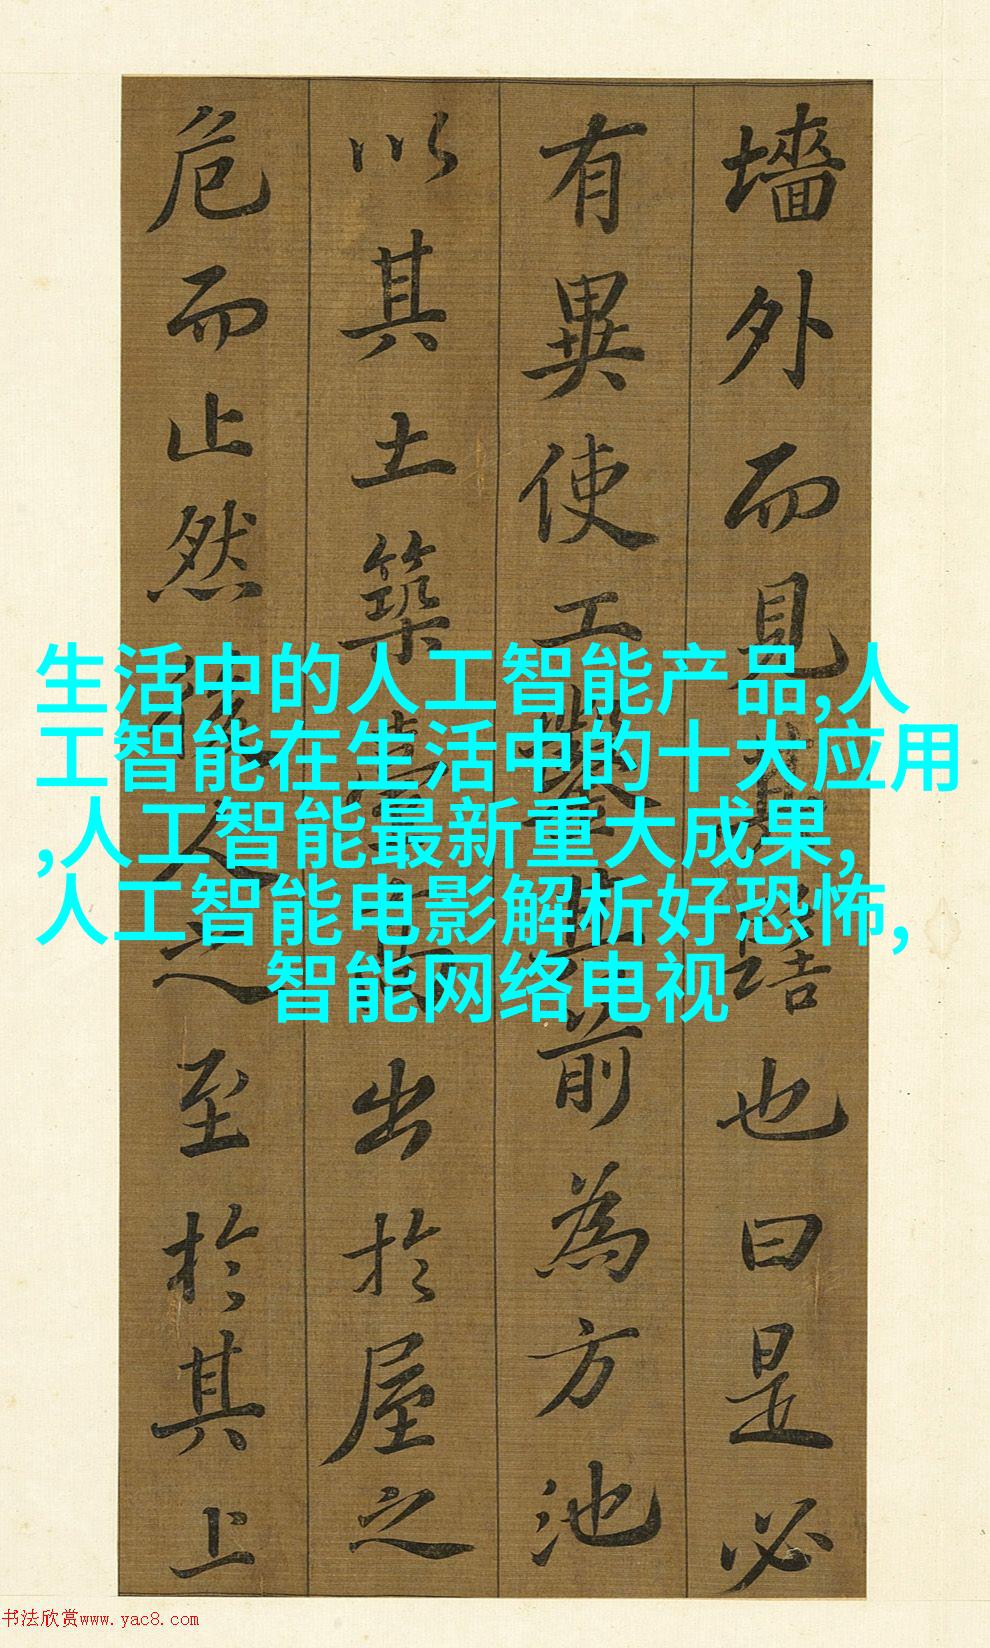 墻外而見其髻也曰是必
有異使工鑿其前為方池
以其土築臺高出於屋之
危而止然後人之至於其上
生活中的人工智能产品,人
工智能在生活中的十大应用
,人工智能最新重大成果,
人工智能电影解析好恐怖,
智能网络电视
书法欣赏www.yac8.com